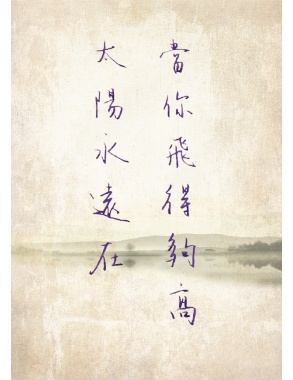 當你飛得夠高
太陽永遠在